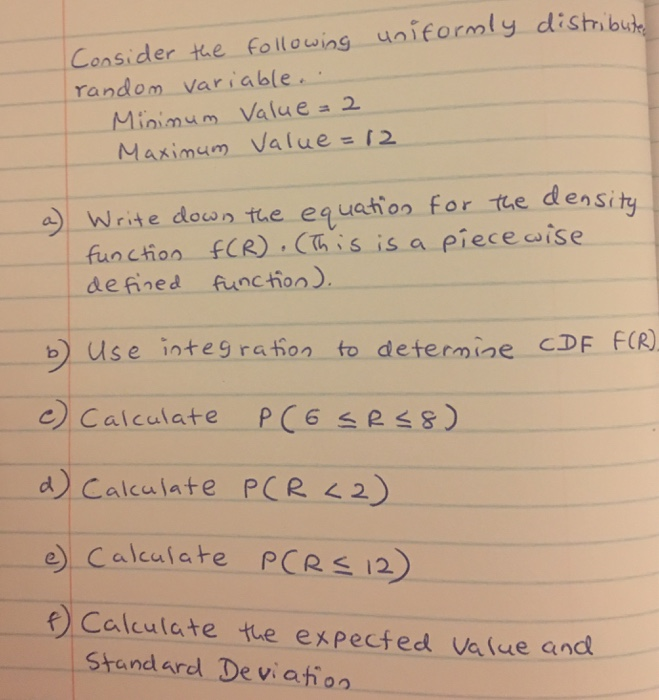 Consider the following uniformly distribute
random variable.
Minimum Value = 2
Maximum Value = 12
a) Write down the equation for the density
function f(R). (This is a piecewise
defined function).
b) Use integration to determine CDF F(R)
c) Calculate P(6 ≤ R ≤ 8)
d) Calculate P(R < 2)
e) Calculate P(R ≤ 12)
f) Calculate the expected value and
Standard Deviation